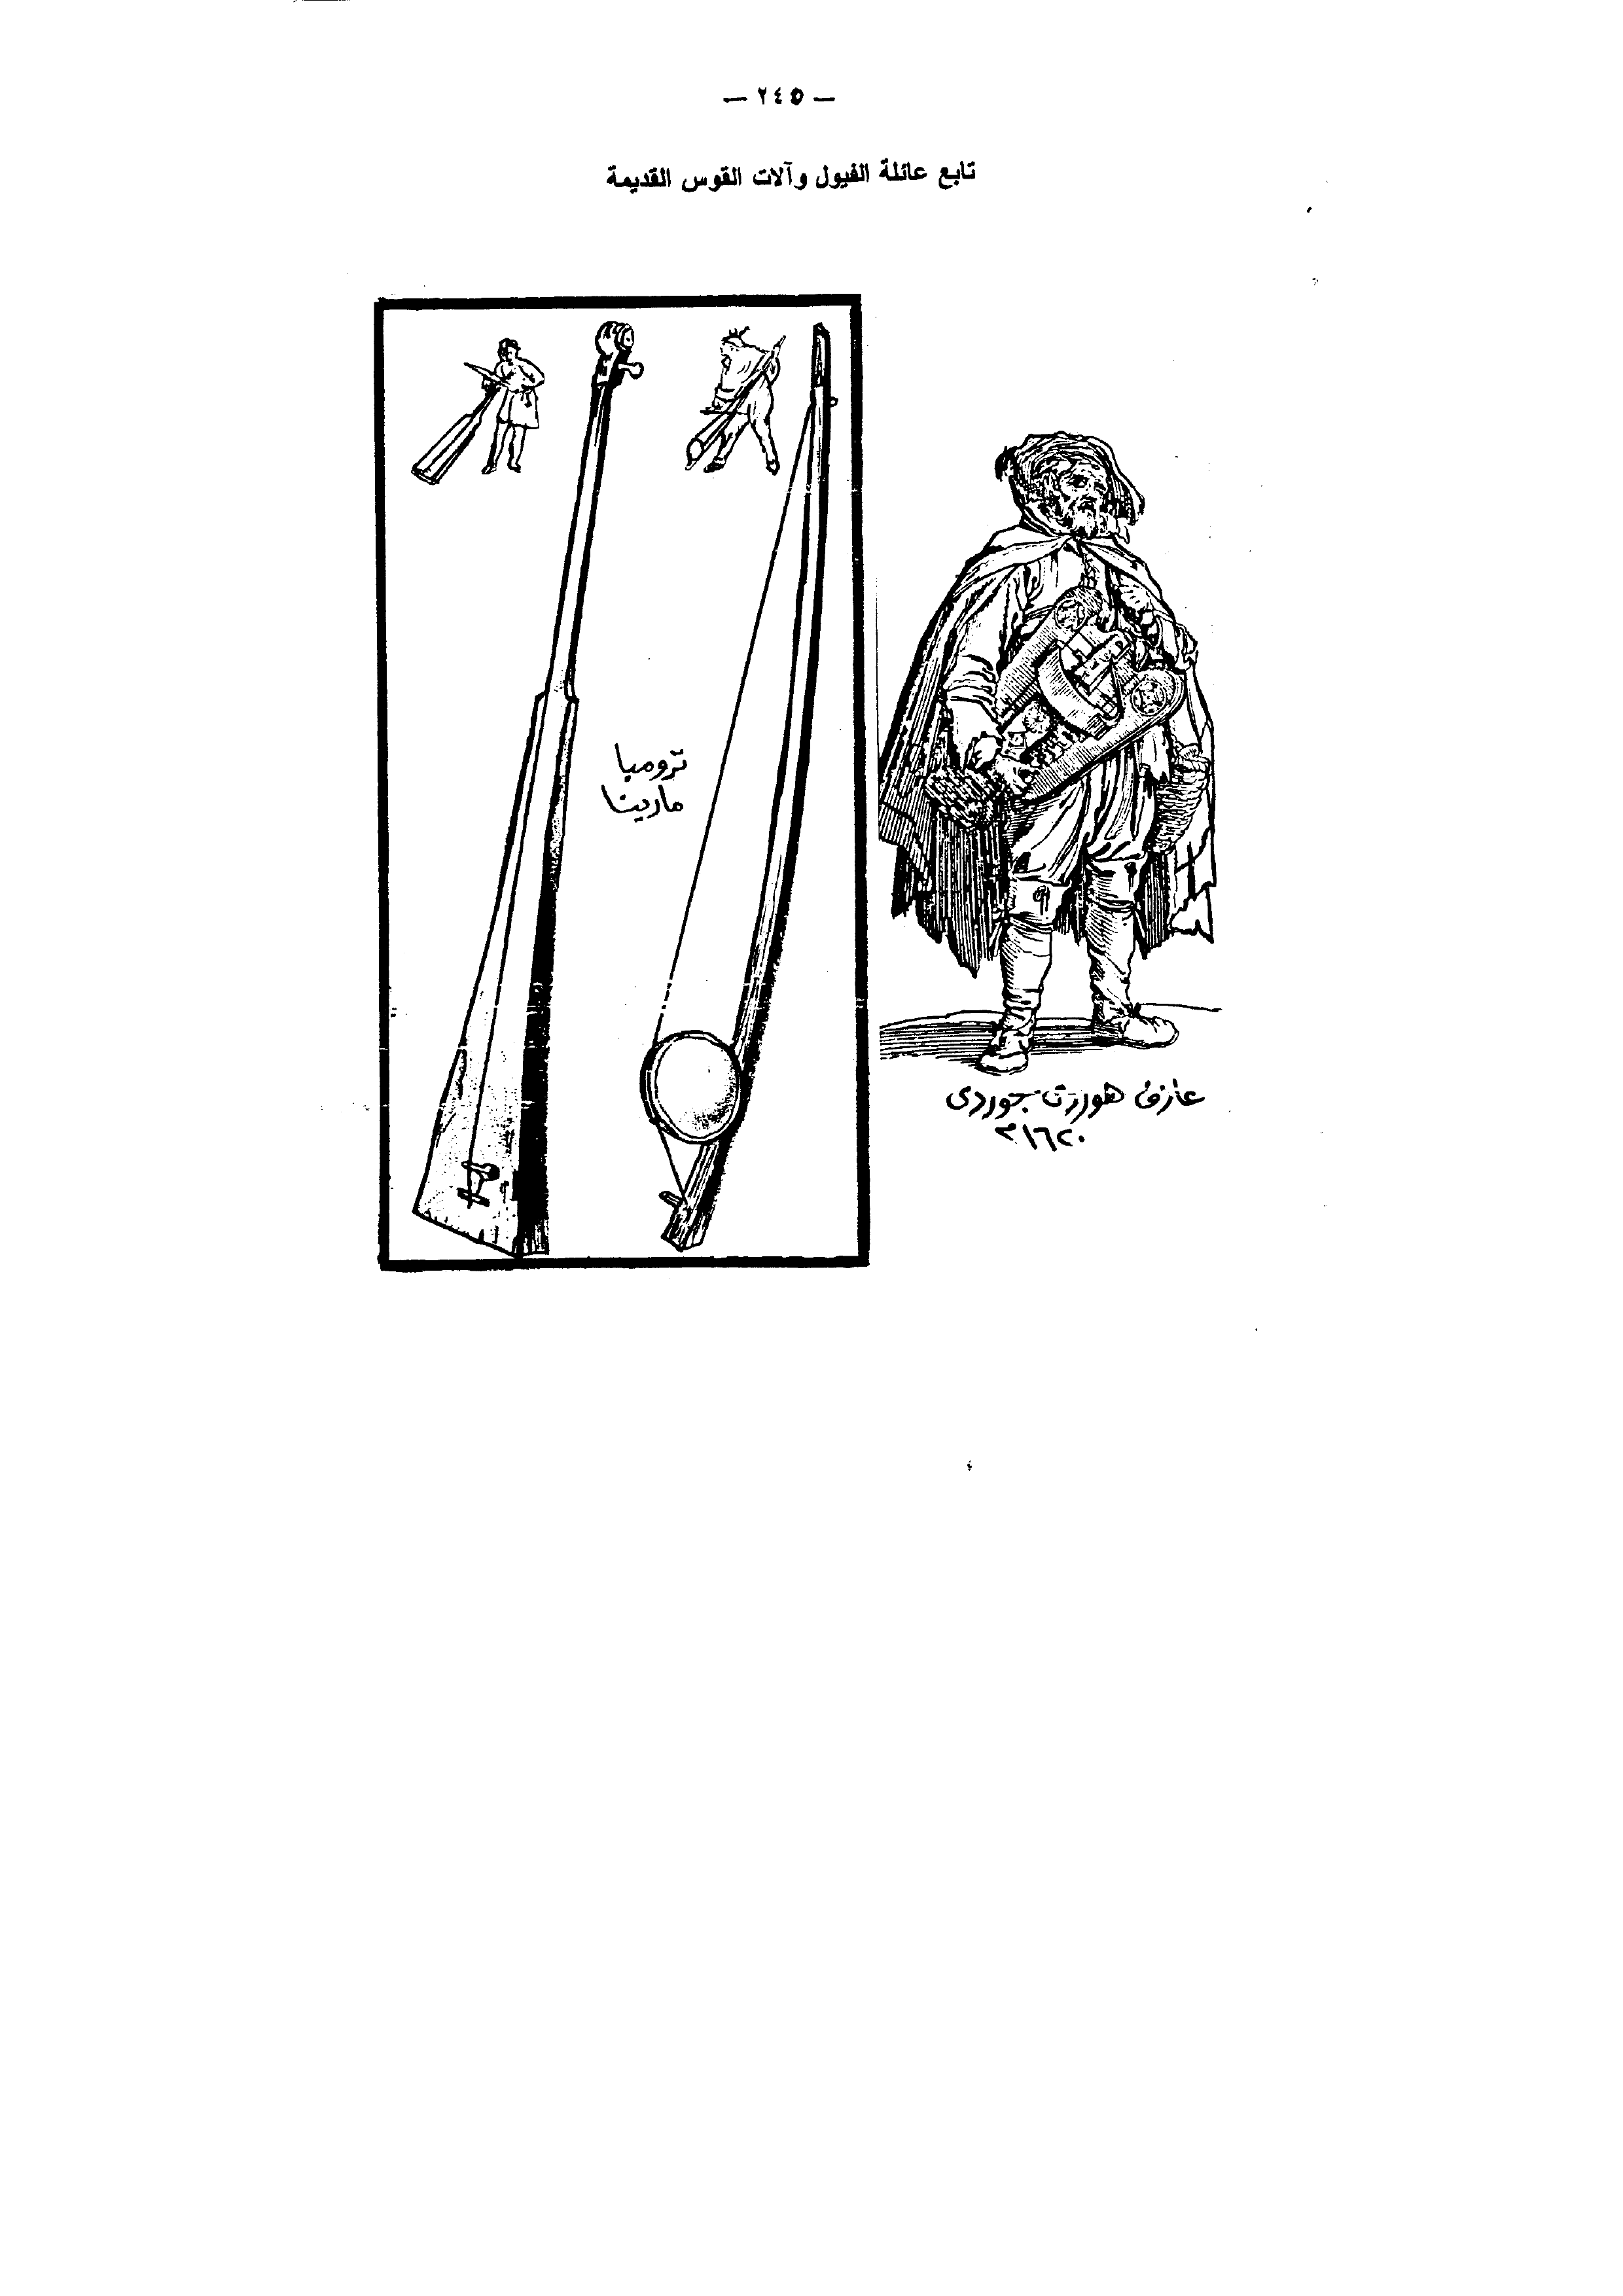 — ٢٤٥ —
تابع عائلة الفيول وآلات القوس القديمة
ترومبا
مارينا
عازف هوردى جوردى
١٦٢٠م